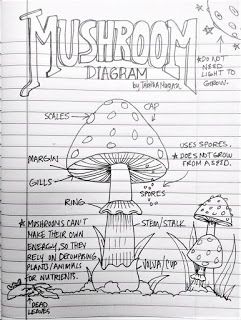 MUSHROOM
DIAGRAM
by Tabitha
* DO NOT
NEED
LIGHT TO
GROW.
SCALES
CAP
USES SPORES.
* DOES NOT GROW
FROM A SEED.
MARGIN
GILLS
SPORES
RING
* MUSHROOMS CAN'T
MAKE THEIR OWN
ENERGY, SO THEY
RELY ON DECOMPOSING
PLANTS/ANIMALS
FOR NUTRIENTS.
STEM/STALK
VOLVA/CUP
DEAD
LEAVES